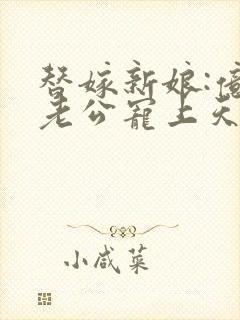 替嫁新娘:億
老公寵上天
小咸菜